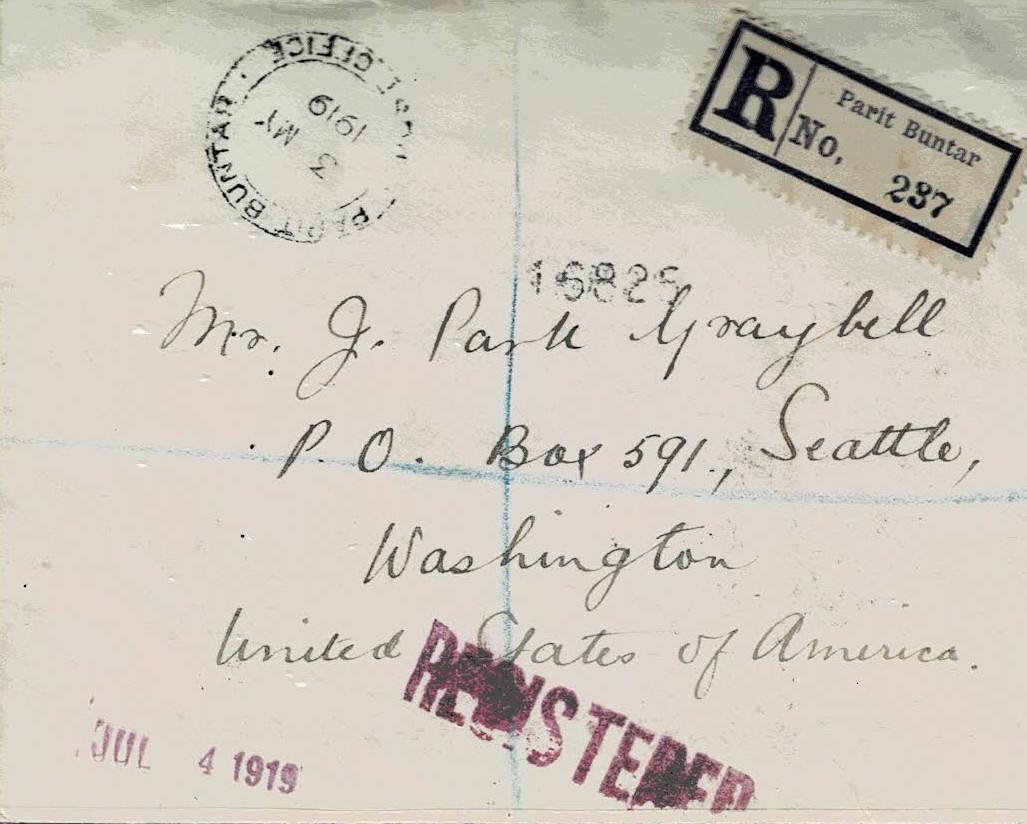 PARIT BUNTAR POST OFFICE
3 MY
1919
R
Parit Buntar
No. 237
Mr. J. Park Graybill
P. O. Box 591., Seattle,
Washington
United States of America.
REGISTERED
JUL 4 1919